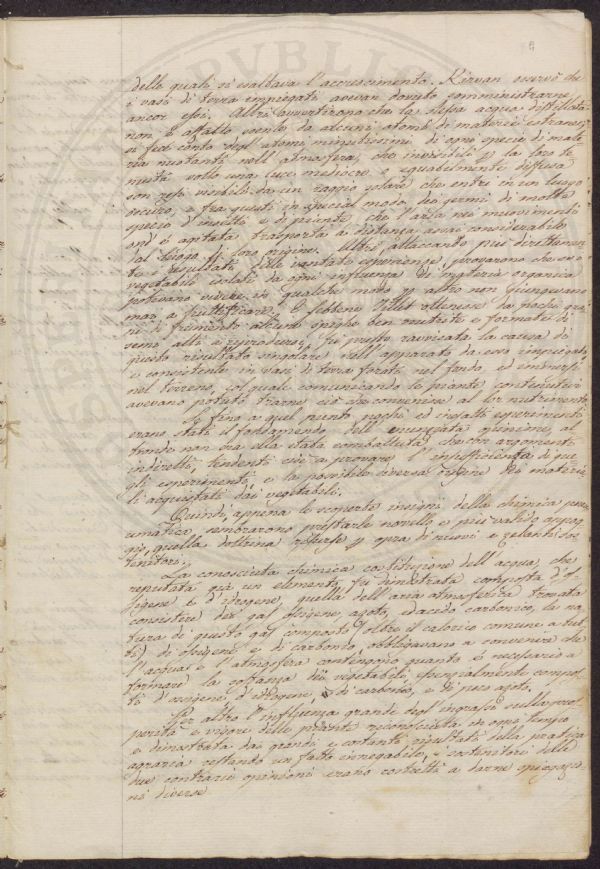 delle quali si esaltava l'accrescimento. Kirvan osservò che
i vasi di terra impiegati avevan dovuto somministrarne
ancor essi. Altri avvertirono che la stessa acqua distillata
non è affatto esente da alcuni atomi di materie estranee;
si fece conto degl'atomi minutissimi di ogni specie di mate-
ria nuotanti nell'atmosfera, che invisibili p la loro te-
nuità sotto una luce mediocre e egualmente diffusa
son resi visibili da un raggio solare che entri in un luogo
oscuro, e fra questi in special modo, dei germi di molte
specie d'insetti e di piante che l'aria nei movimenti
ond'è agitata trasporta a distanza assai considerabile
dal luogo di loro origine. Altri attaccando più direttamen-
te i resultati delle vantate esperienze, provarono che se i
vegetabili isolati da ogni influenza di materia organica
potevano vivere in qualche modo, p altro non giungevano
mai a fruttificare. E sebbene Tillet ottenesse da pochi gra-
ni di frumento alcune spighe ben nutrite e formate di
semi atti a riprodursi, fu presto ravvisata la causa di
questo risultato singolare nell'apparato da esso impiegato
e consistente in vasi di terra forati nel fondo, ed immersi
nel terreno, col quale comunicando le piante contenutevi
avevano potuto trarne ciò che conveniva al lor nutrimento
Se fino a quel punto poche ed inesatte esperimenti
erano stati il fondamento dell'enunciata opinione, al
tronde non era ella stata combattuta che con argomenti
indiretti, tendenti cioè a provare l'insufficienza di que
gli esperimenti, e la possibile diversa origine dei materia-
li acquistati dai vegetabili.
Quindi, appena le scoperte insigni della chimica pneu-
matica sembrarono prestarle novello e più valido appog-
gio, quella dottrina risurse p opra di nuovi e zelanti sos-
tenitori.
La conosciuta chimica costituzione dell'acqua, che
reputata già un elemento fu dimostrata composta d'os-
sigene e d'idrogene, quella dell'aria atmosferica trovata
consistere dei gas ossigene, azoto, ed acido carbonico, la na-
tura di questo gas composto (oltre il calorico comune a tut-
ti) di ossigene e di carbonio, obbligavano a convenire che
l'acqua e l'atmosfera contengono quanto è necessario a
formare la sostanza dei vegetabili, essenzialmente compos-
ti d'ossigene, d'idrogene, di carbonio, e di poco azoto.
Per altro l'influenza grande degl'ingrassi sulla pros-
perità e vigore delle piante riconosciuta in ogni tempo
e dimostrata dai grandi e costanti resultati della pratica
agraria restando un fatto innegabile, i sostenitori delle
due contrarie opinioni erano costretti a darne spiegazio-
ni diverse